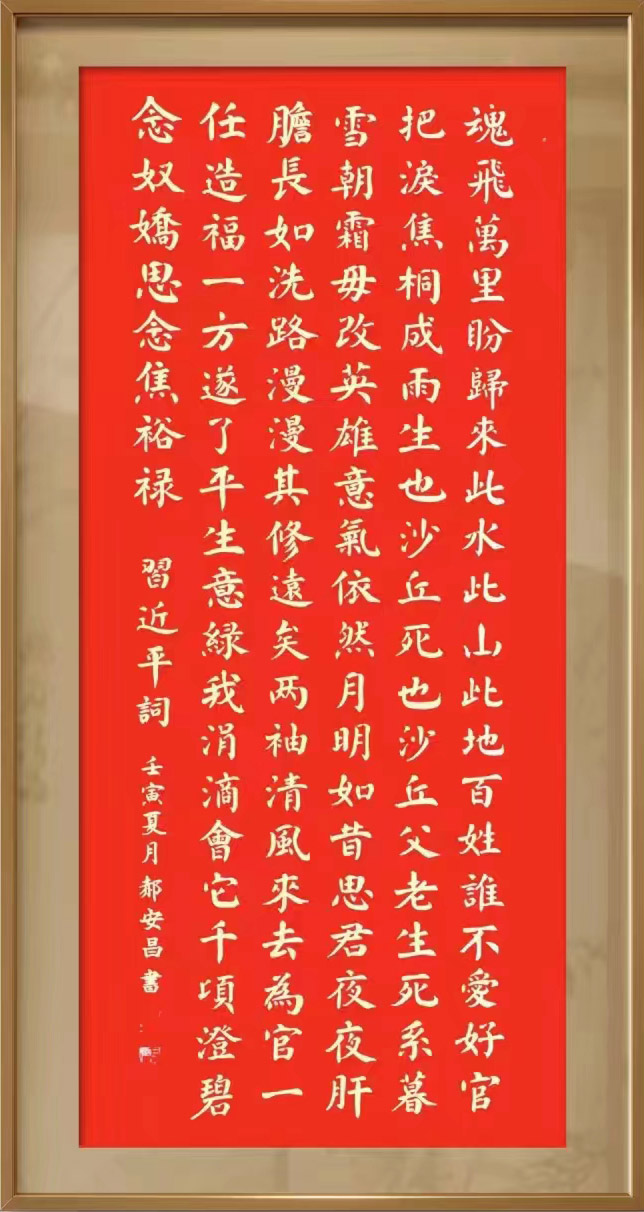 魂飛萬里盼歸來此水此山此地百姓誰不愛好官
把淚焦桐成雨生也沙丘死也沙丘父老生死系暮
雪朝霜毋改英雄意氣依然月明如昔思君夜夜肝
膽長如洗路漫漫其修遠矣两袖清風來去為官一
任造福一方遂了平生意緑我涓滴會它千頃澄碧
念奴嬌思念焦裕禄 習近平詞 壬寅夏月郝安昌書